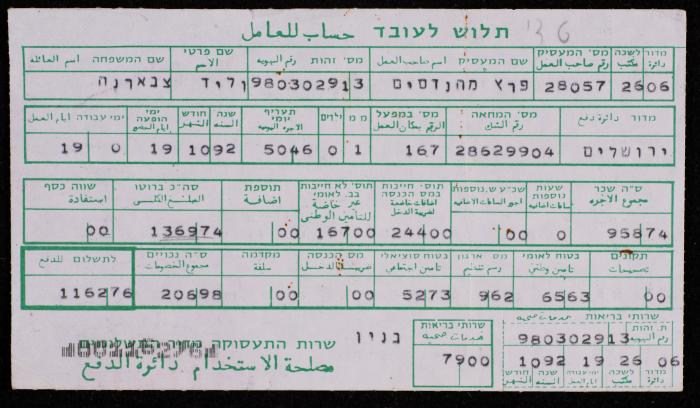 תלוש לעובד حساب للعامل
שם המשפחה اسم العائلة שם פרטי الاسم מס' זהות رقم الهوية שם המעסיק اسم صاحب العمل מס' המעסיק رقم صاحب العمل לשכה مكتب מדור دائرة
צנארנה וליד 980302913 פרץ מהנדסים 28057 26 06
ימי עבודה ايام العمل ימי הופעה חודש الشهر שנה السنة תעריף יומי الاجرة اليومية ילדים מ מ מס' במפעל الرقم بمكان العمل מס' המחאה رقم الشك מדור דائرة دفع
19 0 19 10 92 5046 0 1 167 28629904 ירושלים
שווה כסף استفادة סה"כ ברוטו المبلغ الكلي תוספת اضافة תוס' לא חייבות בב. לאומי غير خاضة للتأمين الوطني תוס' חייבות במס הכנסה اضافات خاضعة لضريبة الدخل שכ"ע ש.נוספות اجور الساعات الاضافية שעות נוספות ساعات اضافية ס"ה שכר مجموع الاجرة
00 136974 00 16700 24400 00 0 95874
לתשלום للدفع ס"ה נכויים مجموع الخصومات מקדמה سلفة מס הכנסה ضريبة الدخل בטוח סוציאלי تأمين اجتماعي מס ארגון رسم تنظيم בטוח לאומי تامين وطني תקונים تصحيحات
116276 20698 00 00 5273 962 6563 00
שרותי בריאות خدمات صحية
ת. זהות رقم الهوية 980302913
שרותי בריאות خدمات صحية 7900
10 92 19 26 06
חודש الشهر שנה السنة ימי עבודה ايام العمل לשכה مكتب מדור دائرة
בניו
שרות התעסוקה מדור התשלומים
مصلحة الاستخدام دائرة الدفع